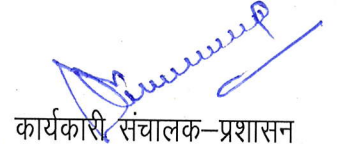 कार्यकारी संचालक–प्रशासन